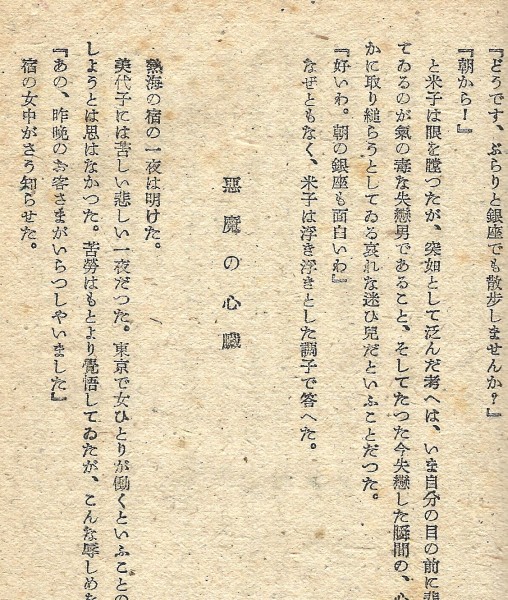 『どうです、ぶらりと銀座でも散歩しませんか？』
『朝から！』
と米子は眼を瞠つたが、突如として泛んだ考へは、いま自分の目の前に悲
てゐるのが氣の毒な失戀男であること、そしてたつた今失戀した瞬間の、心
かに取り縋らうとしてゐる哀れな迷ひ兒だといふことだつた。
『好いわ。朝の銀座も面白いわ』
なぜともなく、米子は浮き浮きとした調子で答へた。
惡魔の心臟
熱海の宿の一夜は明けた。
美代子には苦しい悲しい一夜だつた。東京で女ひとりが働くといふことの
しようとは思はなかつた。苦勞はもとより覺悟してゐたが、こんな辱しめを
『あの、昨晩のお客さまがいらつしやいました』
宿の女中がさう知らせた。